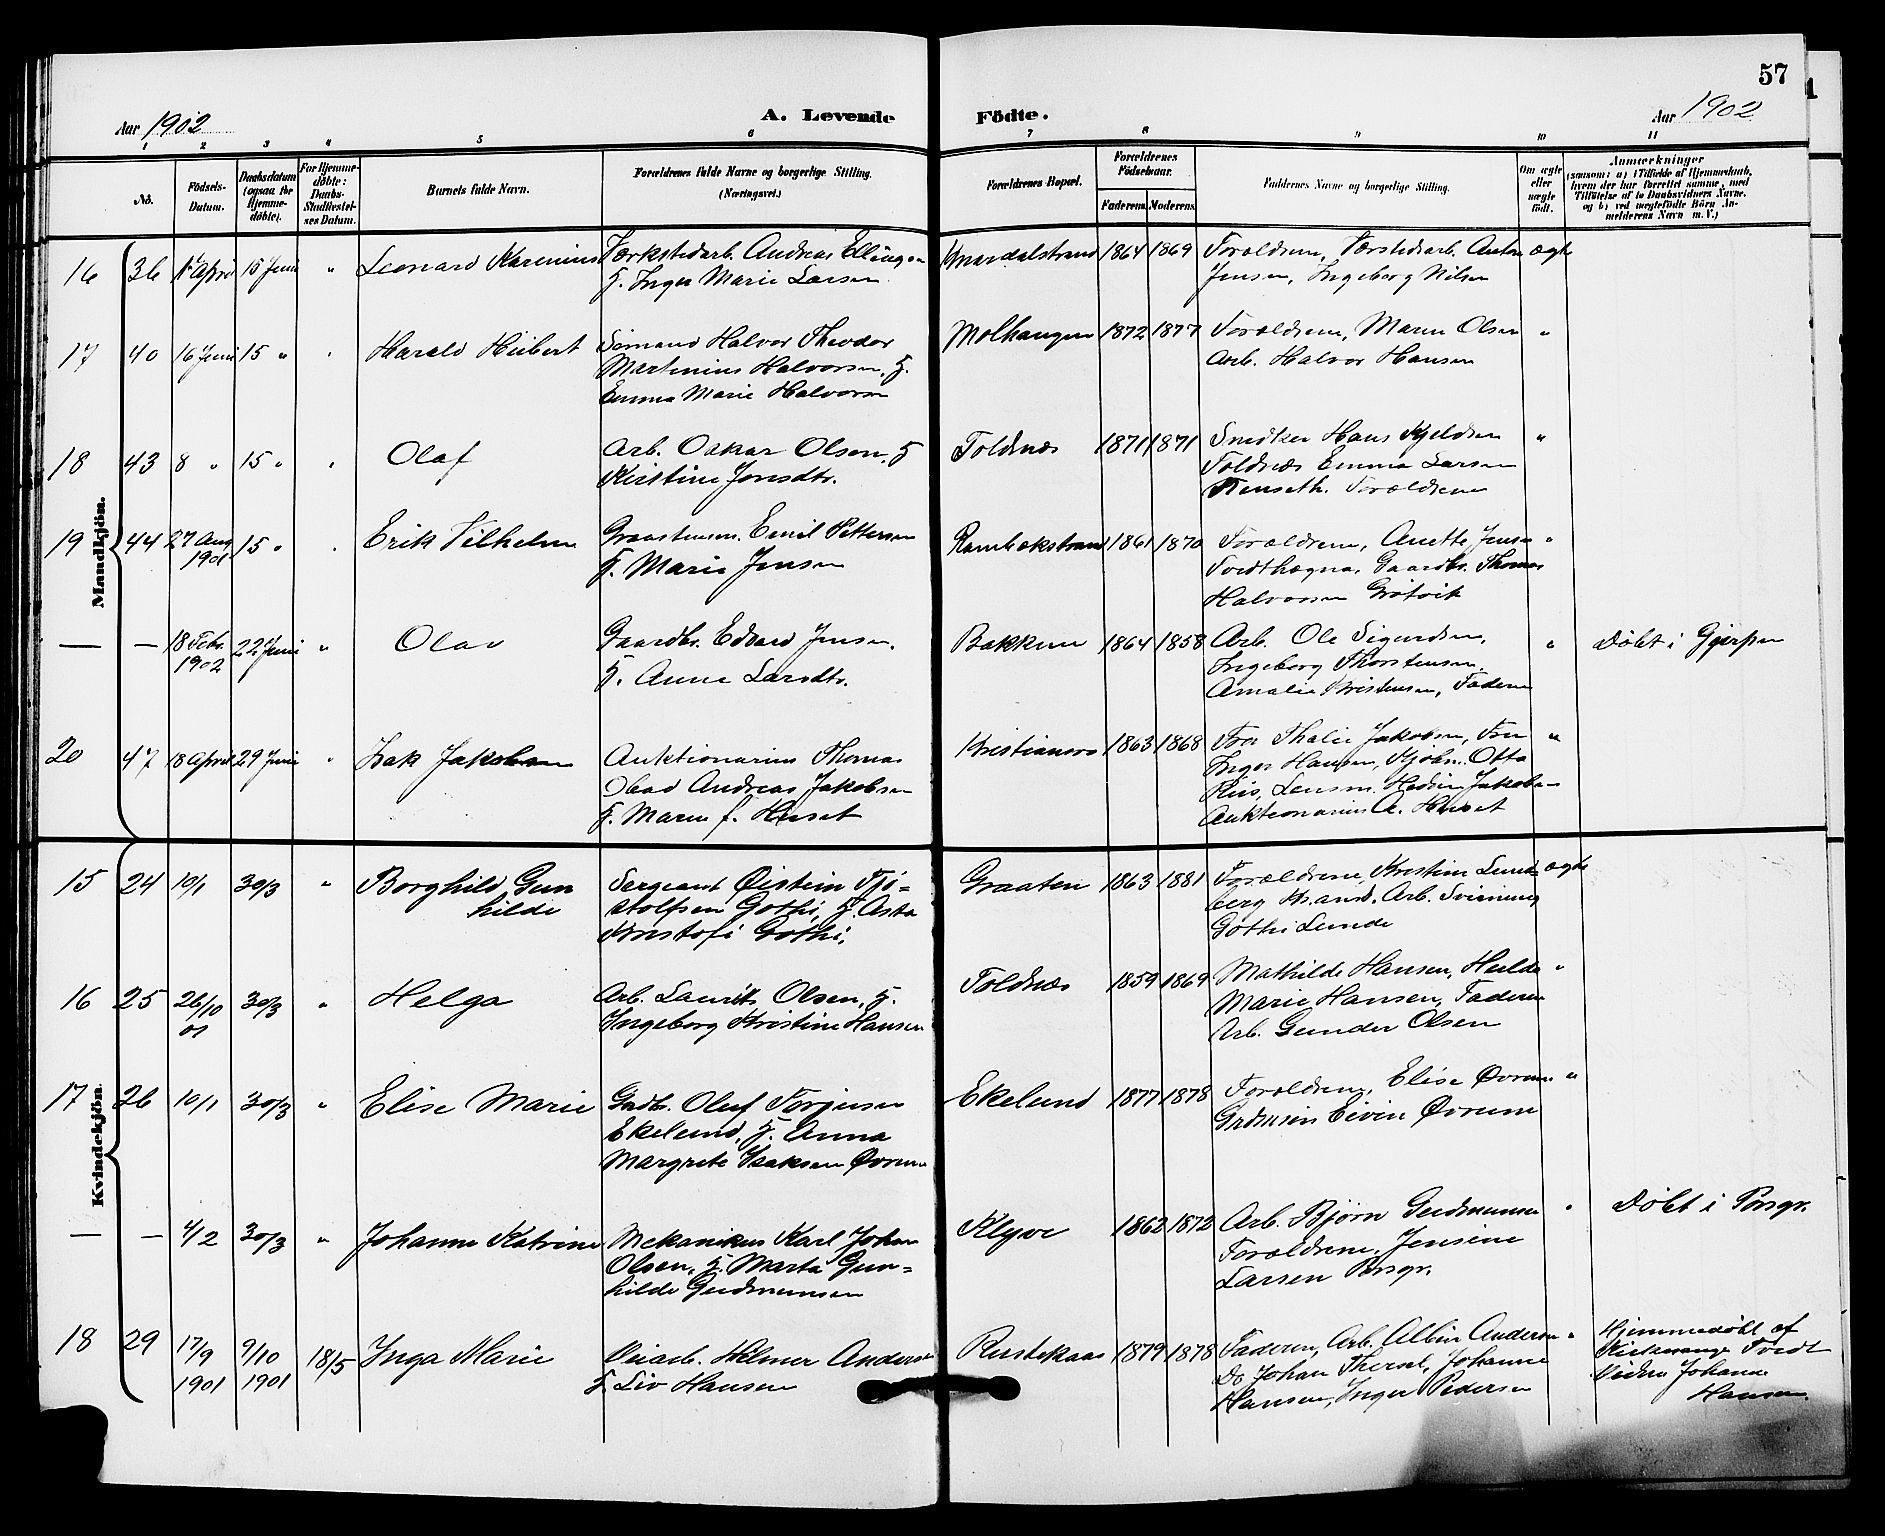 57
Aar 1902
A. Levende
Födte.
Aar 1902
1 2 3 4 5 6 7 8 9 10 11
No.
Födsels-Datum.
Daabsdatum (ogsaa for Hjemmedöbte).
For Hjemmedöbte: Daabs-Stadfæstelses Datum.
Barnets fulde Navn.
Forældrenes fulde Navne og borgerlige Stilling. (Næringsvei.)
Forældrenes Bopæl.
Forældrenes Födselsaar.
Faderens. Moderens.
Faddernes Navne og borgerlige Stilling.
Om ægte eller uægte födt.
Anmærkninger
(saasom: a) i Tilfælde af Hjemmedaab, hvem der har forrettet samme, med Tilföielse af to Daabsvidners Navne. og b) ved uægtefödte Börn Anmelderens Navn m. V.)
Mandkjön.
16 36 April 15 Juni " Leonard Karenius Værkstedarb. Andreas Ellingsen Knardalstrand 1864 1869 Forældrene, Værkstedarb. Anton ægte
H. Inger Marie Larsen Jensen, Ingeborg Nilsen
17 40 16 Juni 15 " Harald Hubert Sömand Halvor Theodor Molhaugen 1872 1877 Forældrene, Maren Olsen "
Martinius Halvorsen, H. Arb. Halvor Hansen
Emma Marie Halvorsen
18 43 8 " 15 " Olaf Arb. Oskar Olsen, H Toldnæs 1871 1871 Hans Kjeldsen "
Kristine Jensdtr. Toldnæs Emma Larsen
Forældrene
19 44 27 Aug 1901 15 " Erik Vilhelm Emil Pettersen Rambekstrand 1861 1870 Forældrene, Anette Jensen "
H. Marie Jensen Gaardbr. Thomas
Halvorsen Grötvik
— — 18 Febr. 1902 22 Juni " Olav Gaardbr. Edvard Jensen. Bakken 1864 1858 Arb. Ole Sigurdsen, " Döbt i Gjerpen
H. Anne Larsdtr. Ingeborg Thorstensen.
Amalie Kristensen, Faderen
20 47 18 April 29 Juni " Isak Jakobsen Auktionarius Thomas Kristiansro 1863 1868 Fru Thalie Jakobsen, Fru "
Obad Andreas Jakobsen Inger Hansen, Kjöbm. Otto
H. Maren f. Huset Lensm. Jakobsen
Auktionarius A. Huset
Kvindekjön.
15 24 10/1 30/3 " Borghild Gunhilde Sergeant Öistein Tjö= Graaten 1863 1881 Forældrene, Kristine Lund- ægte
stolfsen Gothi, H. Asta berg Krsand. Arb. Svinung
Kristofi Gothi. Gothi Lunde
16 25 26/10 01 30/3 " Helga Arb. Laurits Olsen, H. Toldnæs 1859 1869 Mathilde Hansen, Hulda "
Ingeborg Kristine Hansen Marie Hansen, Faderen
Arb. Gunder Olsen
17 26 10/1 30/3 " Elise Marie Grdbr. Oluf Torjusen Ekelund 1877 1878 Forældrene, Elise Övrum "
Ekelund, H. Anna Eivin Övrum
Margrete Isaksen Övrum
— — 4/2 30/3 " Johanne Katrine Mekanikus Karl Johan Klyve 1862 1872 Arb. Björn Gudmunsen " Döbt i Porsgr.
Olsen, H. Marta Gun= Forældrene, Jensine
hilde Gudmunsen Larsen Porsgr.
18 29 17/9 1901 9/10 1901 18/5 Inga Marie Veiarb. Hilmer Andersen Rustekaas 1879 1878 Faderen, Arb. Albin Andersen " Hjemmedöbt af
H. Liv Hansen Do Johan Johanne Kirkesanger Tvedt
Hansen, Inger Pedersen Vidne Johanne
Hansen